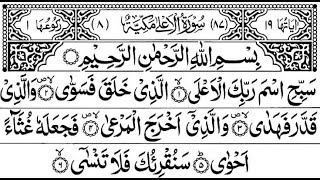 اٰیَاتُهَا ١٩ (٨٧) سُوْرَةُ الْاَعْلٰى مَكِّيَّةٌ (٨) رُكُوْعُهَا ١
بِسْمِ اللّٰهِ الرَّحْمٰنِ الرَّحِيْمِ
سَبِّحِ اسْمَ رَبِّكَ الْاَعْلَى ۙ۝١ الَّذِيْ خَلَقَ فَسَوّٰى ۪ۙ۝٢ وَالَّذِيْ
قَدَّرَ فَهَدٰى ۪ۙ۝٣ وَالَّذِيْ اَخْرَجَ الْمَرْعٰى ۪ۙ۝٤ فَجَعَلَهٗ غُثَآءً
اَحْوٰى ؕ۝٥ سَنُقْرِئُكَ فَلَا تَنْسٰى ۙ۝٦